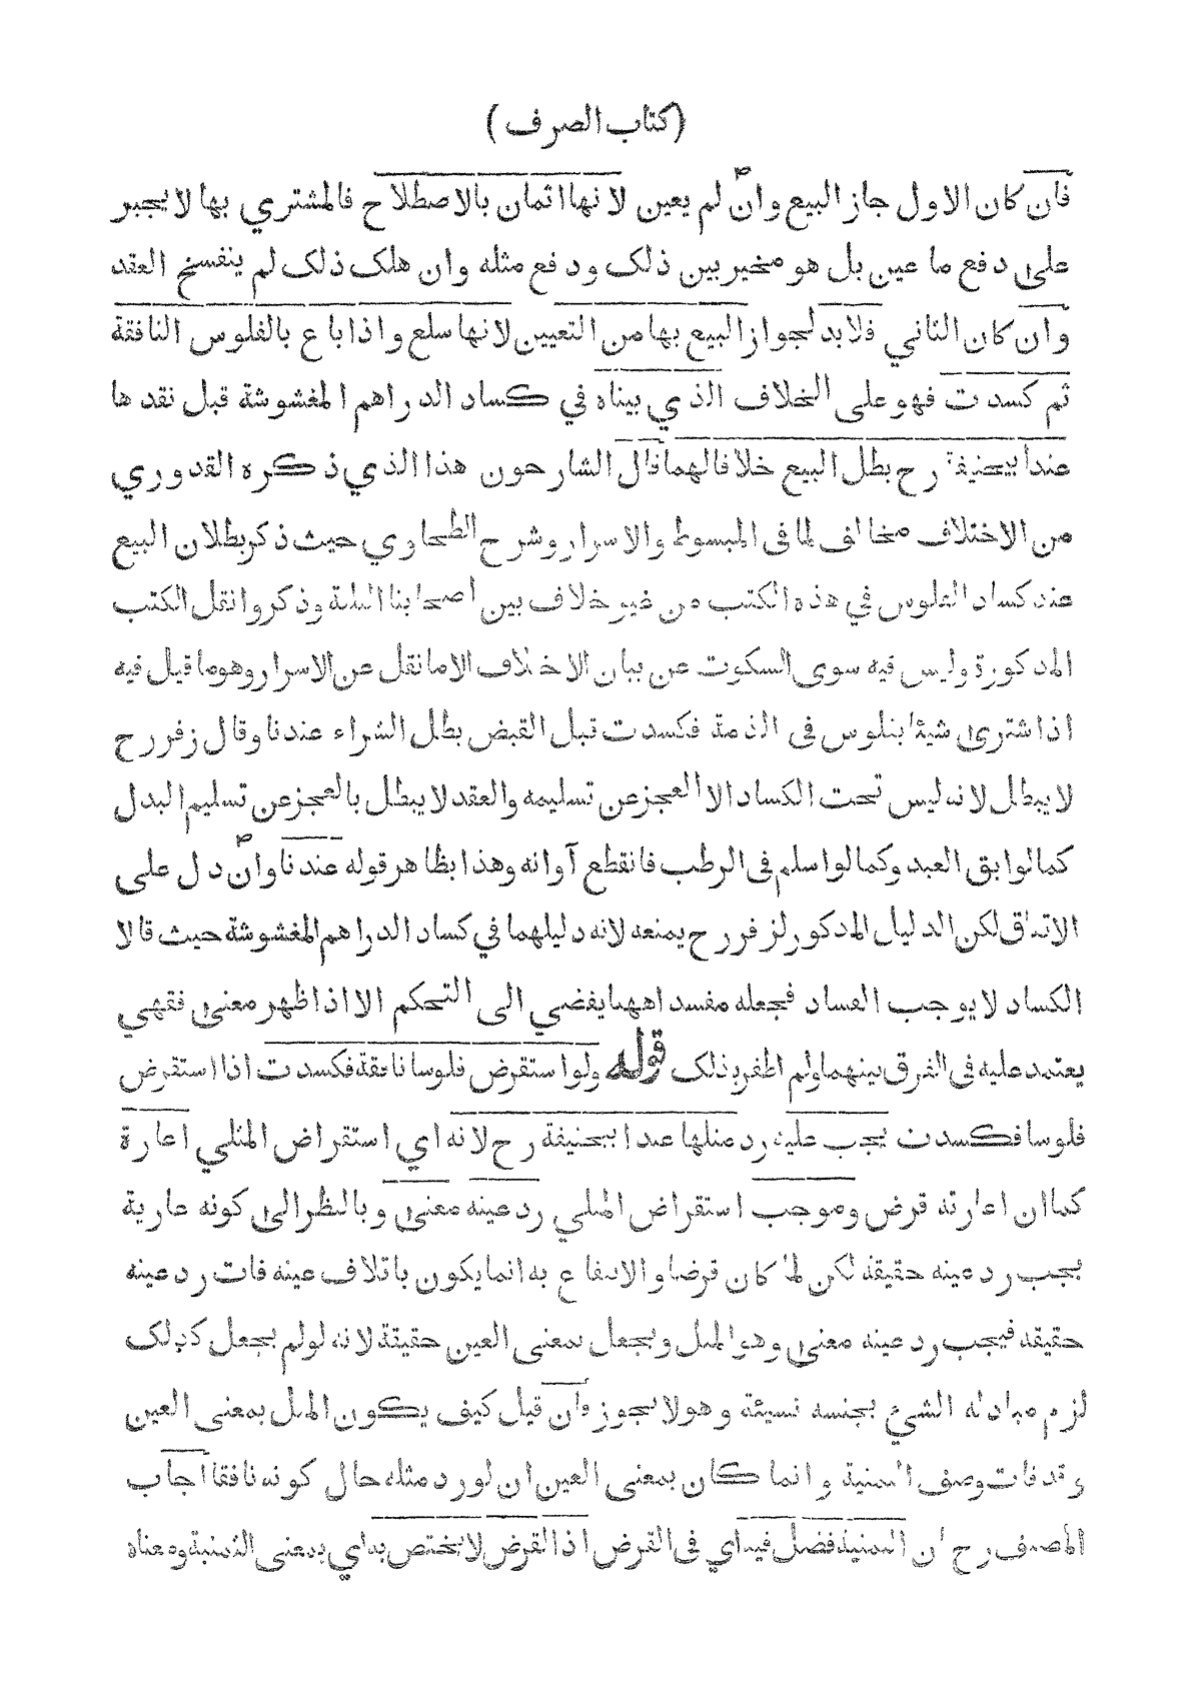 (كتاب الصرف)
فان كان الاول جاز البيع وان لم يعين لانها اثمان بالاصطلاح فالمشتري بها لا يجبر
على دفع ما عين بل هو مخير بين ذلك ودفع مثله وان هلك ذلك لم ينفسخ العقد
وان كان الثاني فلا بد لجواز البيع بها من التعيين لانها سلع واذا باع بالفلوس النافقة
ثم كسدت فهو على الخلاف الذي بيناه في كساد الدراهم المغشوشة قبل نقدها
عند ابيحنيفة رح بطل البيع خلافا لهما قال الشارحون هذا الذي ذكره القدوري
من الاختلاف مخالف لما فى المبسوط والاسرار وشرح الطحاوي حيث ذكر بطلان البيع
عند كساد الفلوس في هذه الكتب من غير خلاف بين اصحابنا الثلثة وذكروا نقل الكتب
المذكورة وليس فيه سوى السكوت عن بيان الاختلاف الا ما نقل عن الاسرار وهو ما قيل فيه
اذا اشترى شيئا بفلوس فى الذمة فكسدت قبل القبض بطل الشراء عندنا وقال زفر رح
لا يبطل لانه ليس تحت الكساد الا العجز عن تسليمه والعقد لا يبطل بالعجز عن تسليم البدل
كما لو ابق العبد وكما لو اسلم فى الرطب فانقطع آوانه وهذا بظاهر قوله عندنا وان دل على
الاتفاق لكن الدليل المذكور لزفر رح يمنعه لانه دليلهما في كساد الدراهم المغشوشة حيث قالا
الكساد لا يوجب الفساد فجعله مفسدا ههنا يفضي الى التحكم الا اذا ظهر معنى فقهي
يعتمد عليه فى الفرق بينهما ولم اظفر بذلك قوله ولو استقرض فلوسا نافقة فكسدت اذا استقرض
فلوسا فكسدت يجب عليه رد مثلها عند ابيحنيفة رح لانه اي استقراض المثلي اعارة
كما ان اعارته قرض وموجب استقراض المثلي رد عينه معنى وبالنظر الى كونه عارية
يجب رد عينه حقيقة لكن لما كان قرضا والانتفاع به انما يكون باتلاف عينه فات رد عينه
حقيقه فيجب رد عينه معنى وهو المثل ويجعل بمعنى العين حقيقة لانه لو لم يجعل كذلك
لزم مبادله الشئ بجنسه نسيئة وهو لا يجوز وان قيل كيف يكون المثل بمعنى العين
وقد فات وصف الثمنية وانما كان بمعنى العين ان لو رد مثله حال كونه نافقا اجاب
المصنف رح ان الثمنية فضل فيه اي فى القرض اذ القرض لا يختص به اي بمعنى الثمنية ومعناه